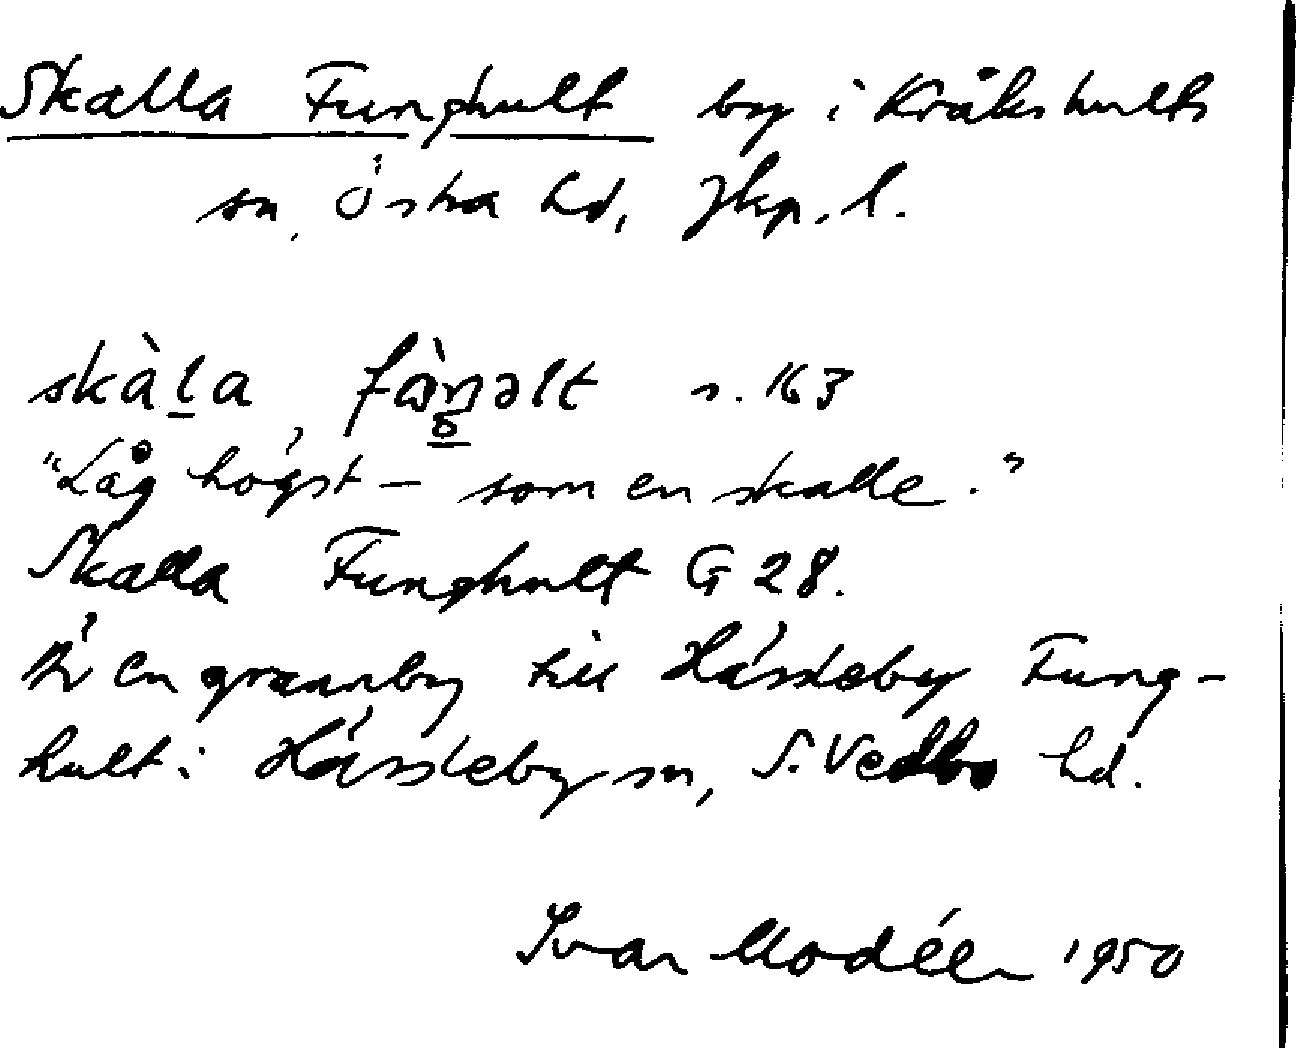 Skalla Funghult by i Kråkshults
sn, Östra hd, Jkp. l.
skàl̲a, fàŋəlt s. 163
"Låg högst – som en skalle."
Skalla Funghult G 28.
Är en grannby till Hässleby Fung-
hult i Hässleby sn, S. Vedbo hd.
Ivar Modéer 1950